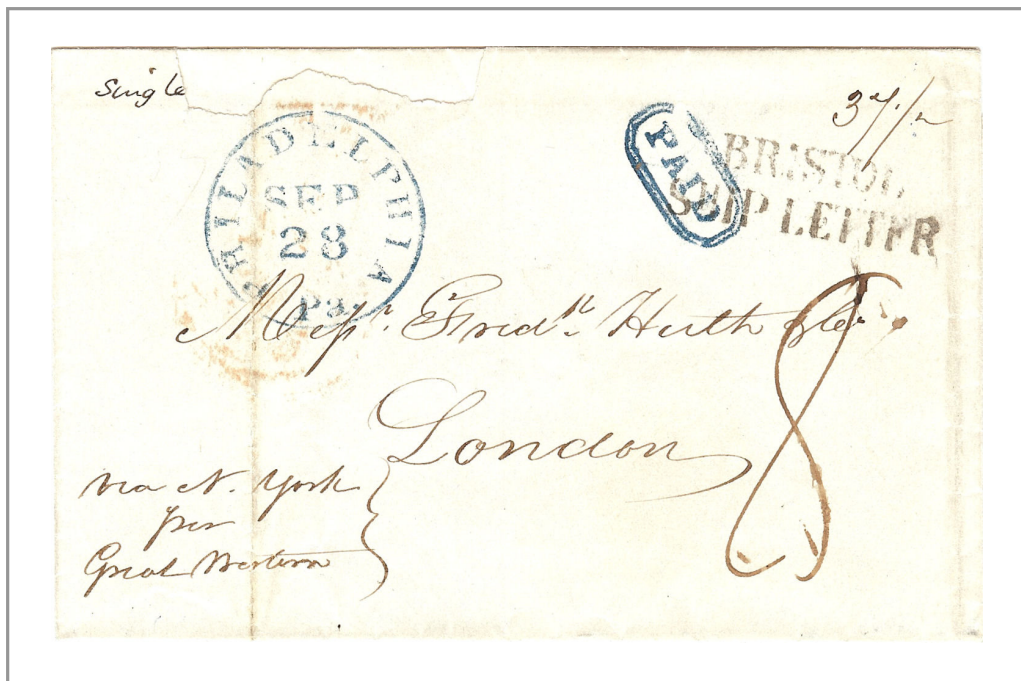 Single
37 1/2
PHILADELPHIA
SEP
28
Pa.
PAID
BRISTOL
SHIP LETTER
Messrs. Fredk. Huth & Co.
London
8
via N. York
per
Great Western